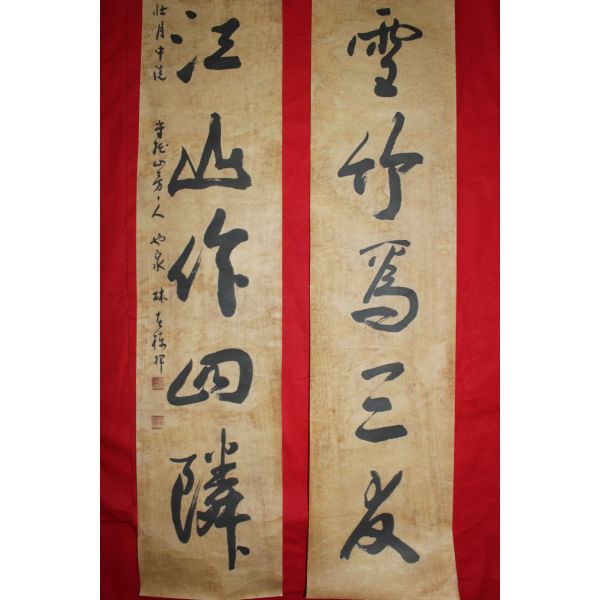 雪竹爲三友
江山作四隣
壯月中浣
山房主人 也泉 林